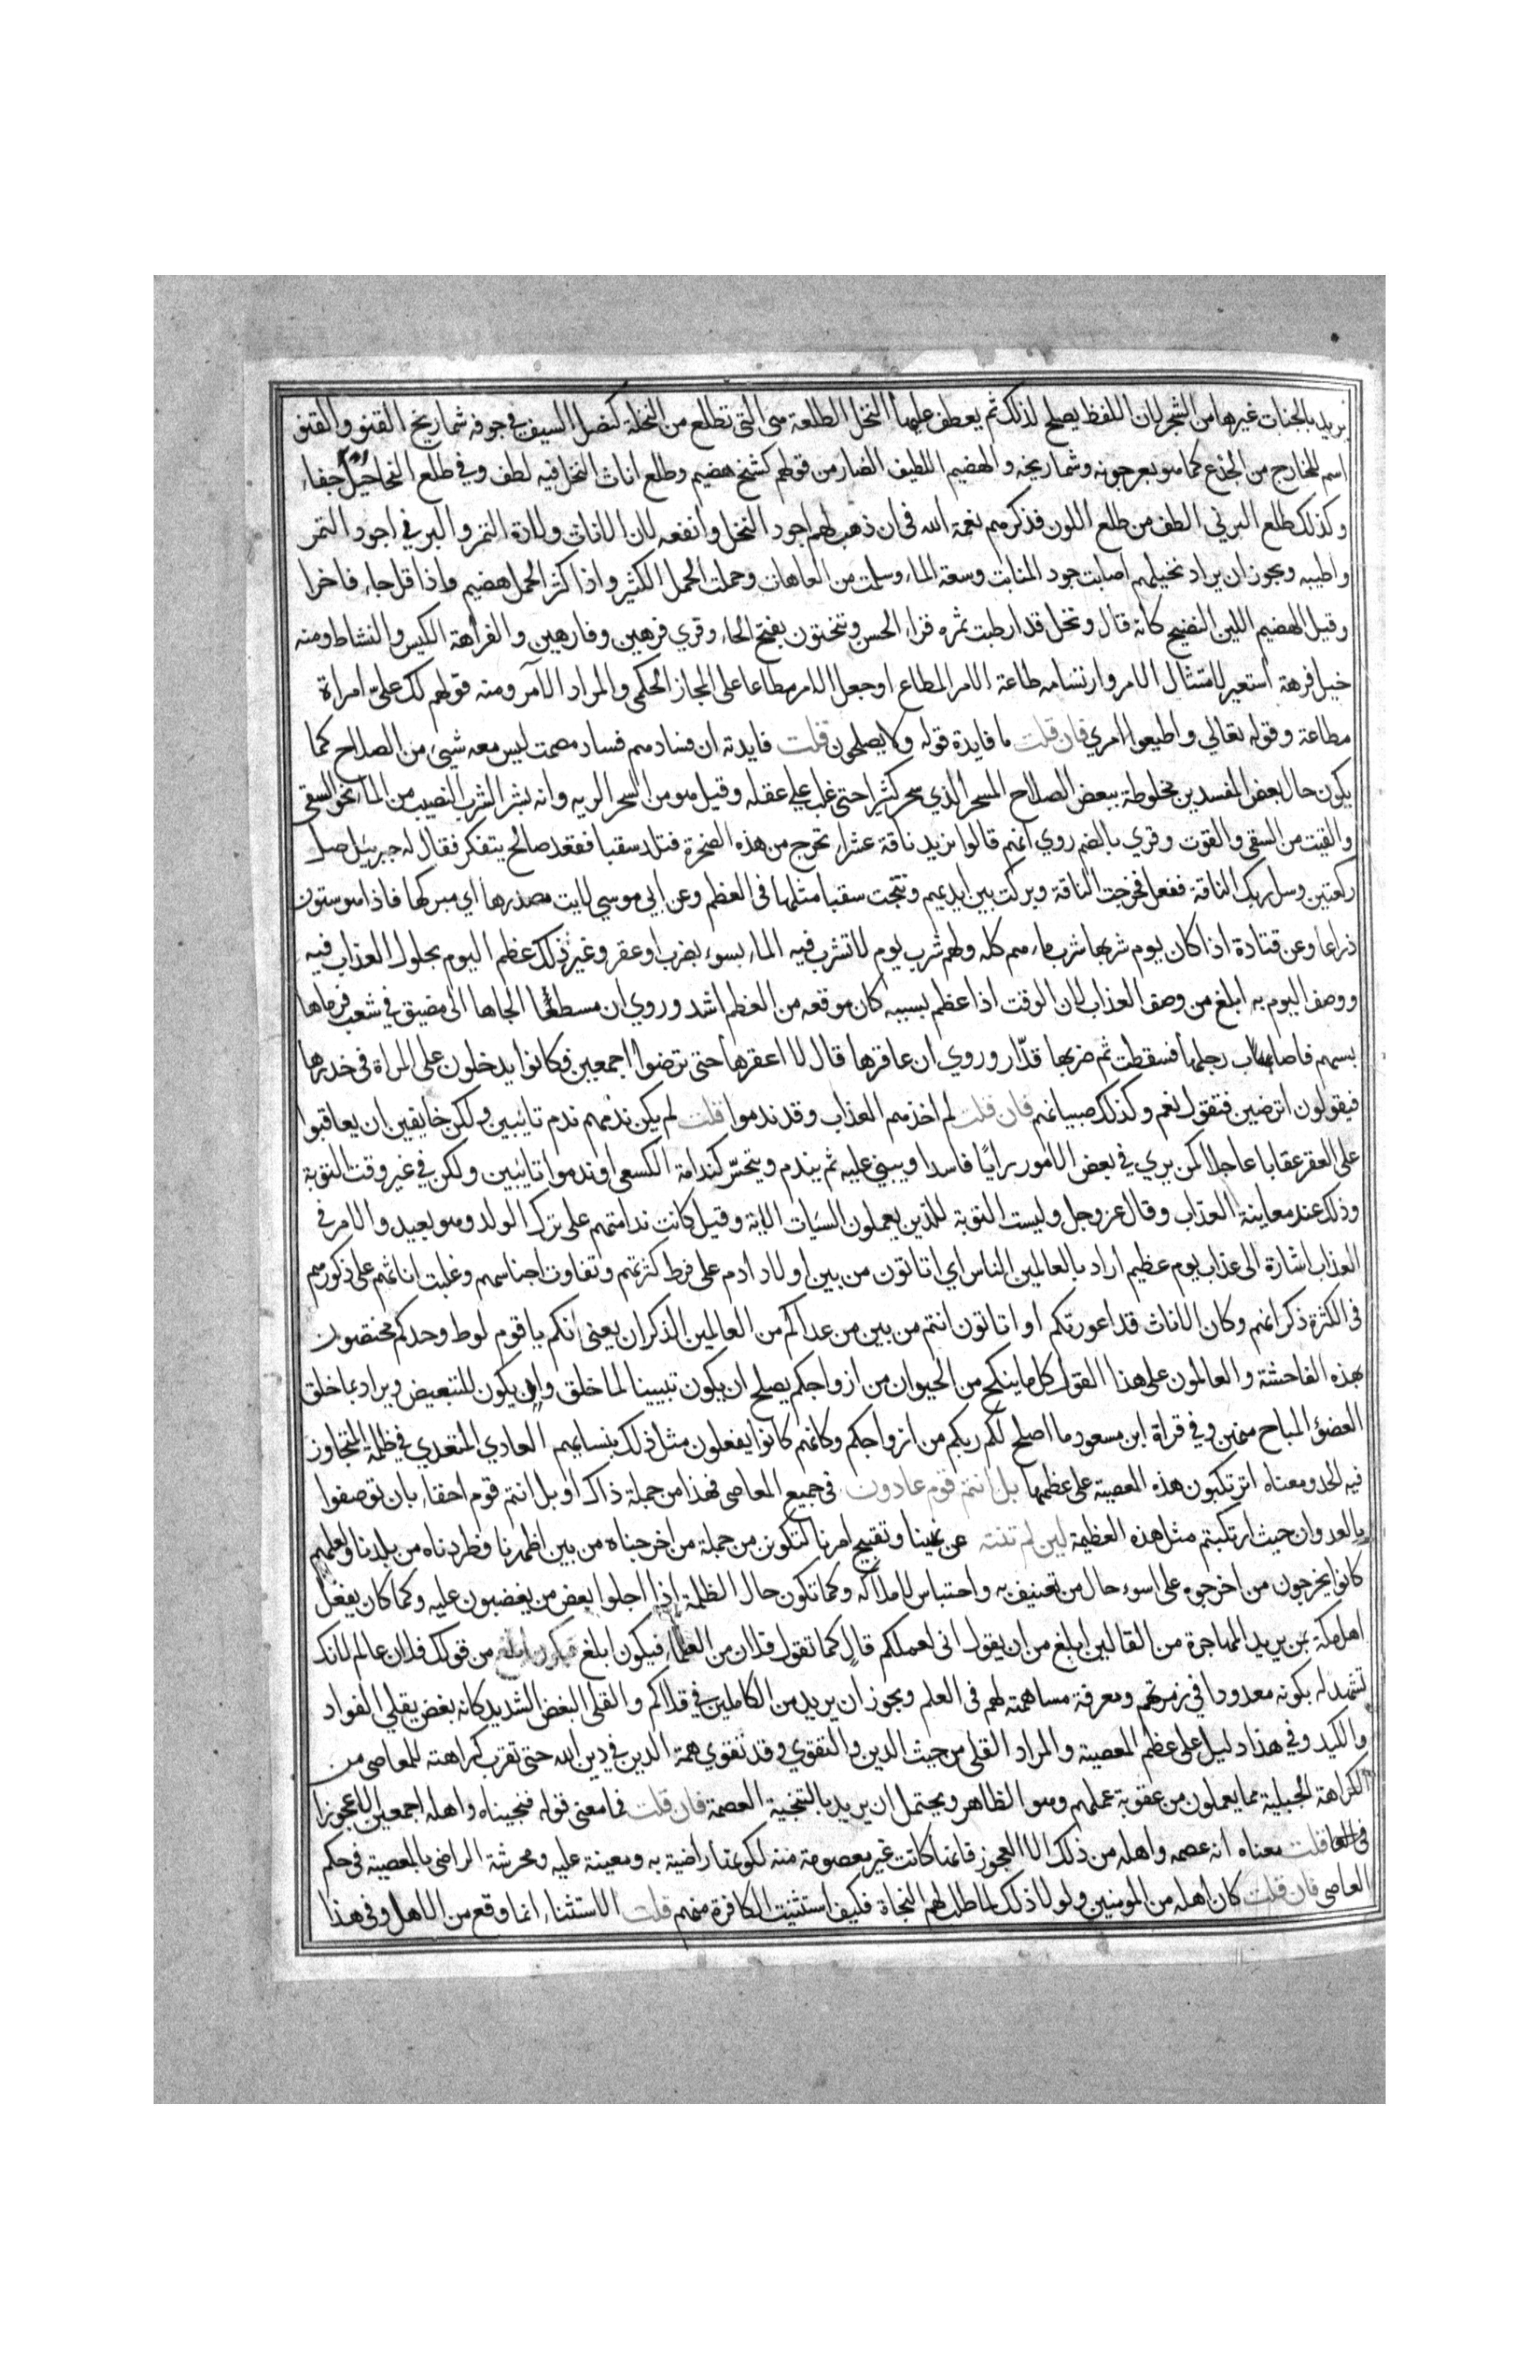 يريد بالجنات غيرها من الشجر لان اللفظ يصلح لذلك ثم يعطف عليها النخل الطلعة هي التي تطلع من النخلة كنصل السيف في جوفه شماريخ القنو والقنو
اسم للخارج من الجذع كما هو بعرجونه وشماريخه والهضيم اللطيف الضامر من قولهم كشح هضيم وطلع اناث النخل فيه لطف وفي طلع الفحاحيل جفاء
وكذلك طلع البرني الطف من طلع اللون فذكرهم نعمة الله في ان ذهب لهم اجود النخل وانفعه لان الاناث ولادة التمر والبر في اجود التمر
واطيبه ويجوز ان يراد نخيلهم اصابت جود المنابت وسعة الماء وسلمت من العاهات وحملت الحمل الكثير واذا كثر الحمل هضيم واذا قل جاء فاخرا
وقيل الهضيم اللين النضيج كانه قال ونخل قد ارطبت ثمره قراء الحسن وتنحتون بفتح الحاء وقري فرهين وفارهين والفراهة الكيس والنشاط ومنه
خيل فرهة استعير لامتثال الامر وارتسامه طاعة الامر المطاع اوجعل الامر مطاعا على المجاز الحكمي والمراد الآمر ومنه قولهم لك علىّ امراة
مطاعة وقوله تعالي واطيعوا امري فان قلت ما فايدة قوله ولا يصلحون قلت فايدته ان فسادهم فساد مصمت ليس معه شيئ من الصلاح كما
يكون حال بعض المفسدين مخلوطة ببعض الصلاح المسحر الذي سحر كثيرا حتى غلب علي عقله وقيل هو من السحر الريه وانه بشر الشرب النصيب من الماء نحو السقي
والقيت من السقي والقوت وقري بالضم روي انهم قالوا نريد ناقة عشراء تخرج من هذه الصخرة فتلد سقبا فقعد صالح يتفكر فقال له جبرييل صل
ركعتين وسل ربك الناقة ففعل فخرجت الناقة وبركت بين ايديهم ونتجت سقبا مثلها في العظم وعن ابي موسي رايت مصدرها اي مبركها فاذا هو ستون
ذراعا وعن قتادة اذا كان يوم شربها شرب ماءهم كله ولهم شرب يوم لا تشرب فيه الماء بسوء بضرب او عقر وغير ذلك عظم اليوم بحلول العذاب فيه
ووصف اليوم به ابلغ من وصف العذاب لان الوقت اذا عظم بسببه كان موقعه من العظم اشد وروي ان مسطعا الجاها الى مضيق في شعب فرماها
بسهم فاصاب رجلها فسقطت ثم ضربها قدّار وروي ان عاقرها قال لا اعقرها حتى ترضوا اجمعين فكانوا يدخلون على المراة في خدرها
فيقولون اترضين فتقول نعم وكذلك صبيانهم فان قلت لم اخذهم العذاب وقد ندموا قلت لم يكن ندمهم ندم تايبين ولكن خايفين ان يعاقبوا
على العقر عقابا عاجلا كمن يري في بعض الامور رايًا فاسدا ويبني عليه ثم يندم ويتحسّر كندامة الكسعي او ندموا تايبين ولكن في غير وقت التوبة
وذلك عند معاينة العذاب وقال عز وجل وليست التوبة للذين يعملون السيات الاية وقيل كانت ندامتهم على ترك الولد وهو بعيد والامر في
العذاب اشارة الى عذاب يوم عظيم اراد بالعالمين الناس اي اتاتون من بين اولاد ادم على فرط كثرتهم وتفاوت اجناسهم وغلبت اناثهم على ذكورهم
في الكثرة ذكرانهم وكان الاناث قد اعورتكم او اتاتون انتم من بين من عداكم من العالمين الذكران يعني انكم يا قوم لوط وحدكم مختصون
بهذه الفاحشة والعالمون على هذا القول كل ما ينكح من الحيوان من ازواجكم يصلح ان يكون تبيينا لما خلق وان يكون للتبعيض ويراد بما خلق
العضو المباح منهن وفي قراة ابن مسعود ما اصلح لكم ربكم من ازواجكم وكانهم كانوا يفعلون مثل ذلك بنسايهم العادي المتعدي في ظلمه المتجاوز
فيه الحد ومعناه اترتكبون هذه المعصية على عظمها بل انتم قوم عادون في جميع المعاصي فهذا من جملة ذاك او بل انتم قوم احقاء بان توصفوا
بالعدوان حيث ارتكبتم مثل هذه العظيمة لين لم تنته عن نهينا وتقبيح امرنا لتكونن من جملة من اخرجناه من بين اظهرنا وطردناه من بلدنا ولعلهم
كانوا يخرجون من اخرجوه على اسوء حال من تعنيف به واحتباس لاملاكه وكما تكون حال الظلمة اذا اجلوا بعض من يغضبون عليه وكما كان يفعل
اهل مكة بمن يريد المهاجرة من القالين ابلغ من ان يقول اني لعملكم قالٍ كما تقول فلان من العلماء فيكون ابلغ من قولك فلان عالم لانك
تشهد له بكونه معدودا في زمرتهم ومعرفة مساهمته لهم في العلم ويجوز ان يريد من الكاملين في قلاكم والقلي البغض الشديد كانه بغض يقلي الفواد
والكبد وفي هذا دليل على عظم المعصية والمراد القلي من حيث الدين والتقوي وقد تقوي همة الدين في دين الله حتى تقرب كراهته للمعاصي من
الكراهة الجبلية مما يعملون من عقوبة عملهم وهو الظاهر ويحتمل ان يريد بالتنجية العصمة فان قلت فما معني قوله فنجيناه واهله اجمعين الا عجوزا
في الغا قلت معناه انه عصمه واهله من ذلك الا العجوز فانها كانت غير معصومة منه لكونها راضية به ومعينة عليه ومحرشة الراضي بالمعصية في حكم
العاصي فان قلت كان اهله من المومنين ولولا ذلك لما طلب لهم النجاة فكيف استثنيت الكافرة منهم قلت الاستثناء انما وقع من الاهل وفي هذا